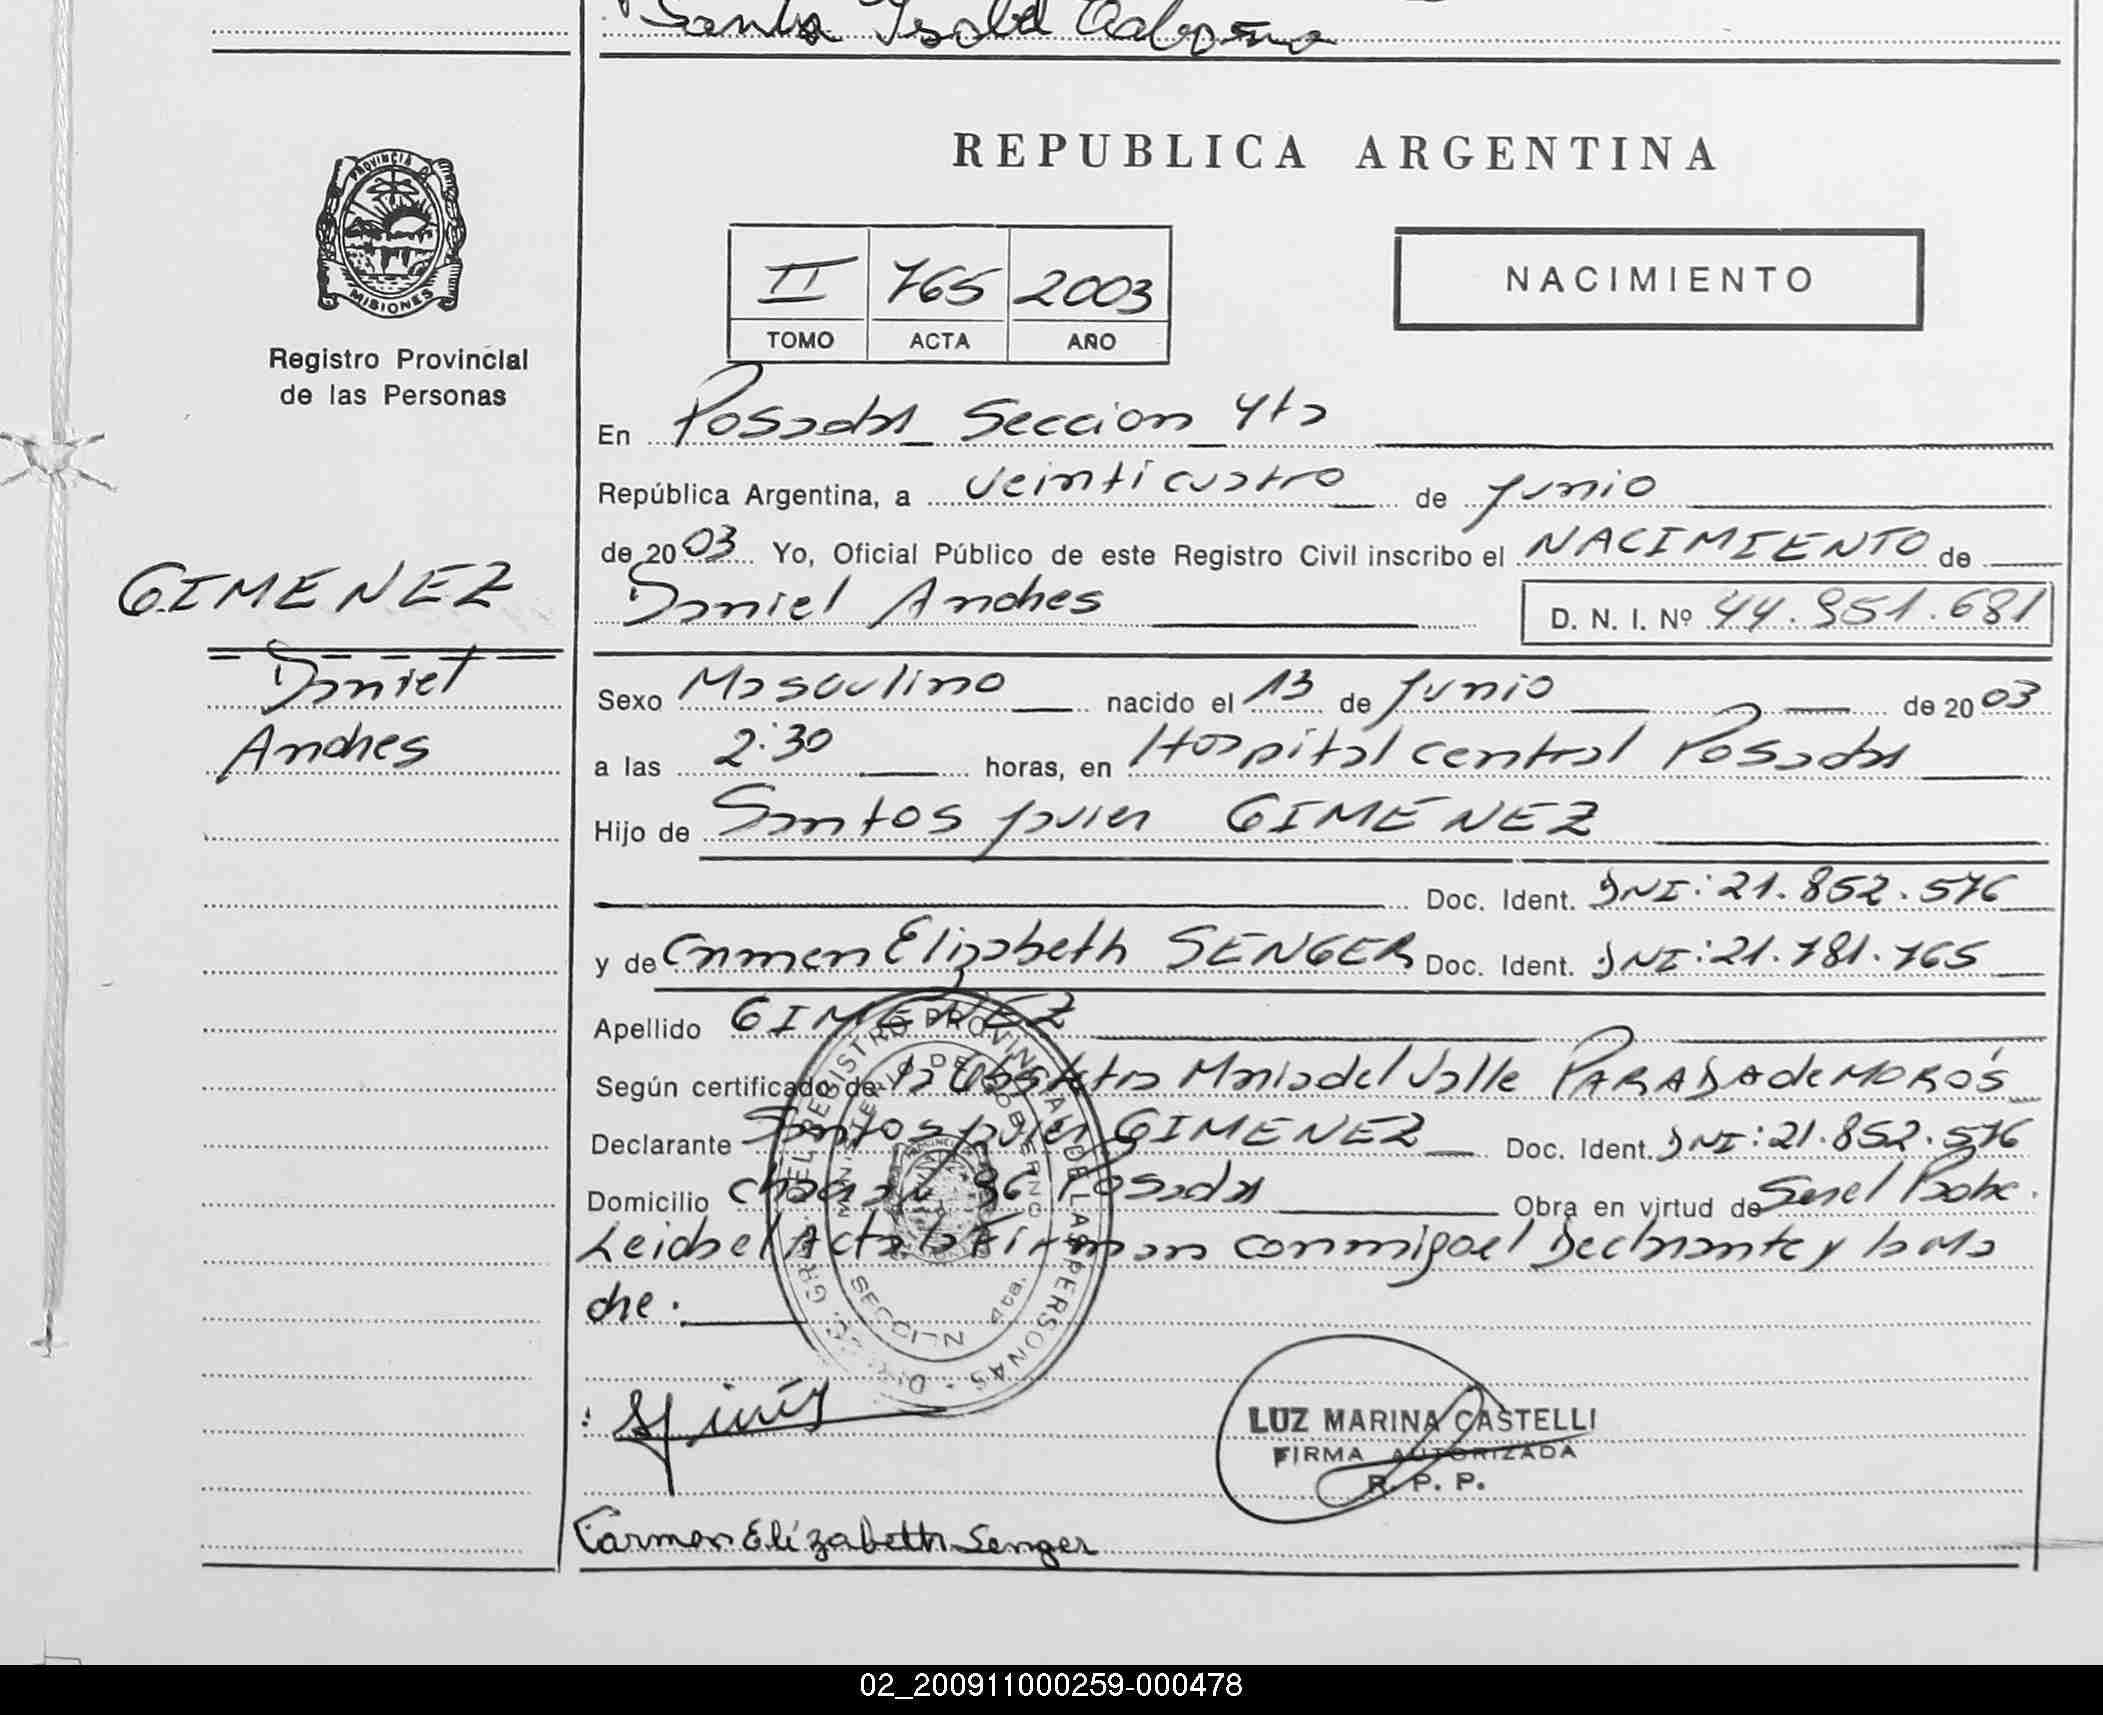 Santa Isabel
REPUBLICA ARGENTINA
PROVINCIA DE
MISIONES
Registro Provincial
de las Personas
II 765 2003
TOMO ACTA AÑO
NACIMIENTO
En Posadas Seccion 4ta
República Argentina, a veinticuatro de Junio
de 2003 Yo, Oficial Público de este Registro Civil inscribo el NACIMIENTO de
GIMENEZ
Daniel Andres D. N. I. Nº 44.951.681
Daniel
Andres
Sexo Masculino nacido el 13 de Junio de 2003
a las 2:30 horas, en Hospital central Posadas
Hijo de Santos Javier GIMENEZ
Doc. Ident. DNI: 21.852.576
y de Carmen Elizabeth SENGER Doc. Ident. DNI: 21.781.765
Apellido GIMENEZ
Según certificado de la Obstetra Maria del Valle PARADA de MOROS
Declarante Santos Javier GIMENEZ Doc. Ident. DNI: 21.852.576
Domicilio chacra 96 Posadas Obra en virtud de Ser el Padre.
Leida el Acta la Firman conmigo el Declarante y la Ma
dre.
REGISTRO PROVINCIAL DE LAS PERSONAS
MINISTERIO DE GOBIERNO
SECCION 4ta.
LUZ MARINA CASTELLI
FIRMA AUTORIZADA
R. P. P.
Carmen Elizabeth Senger
02_200911000259-000478